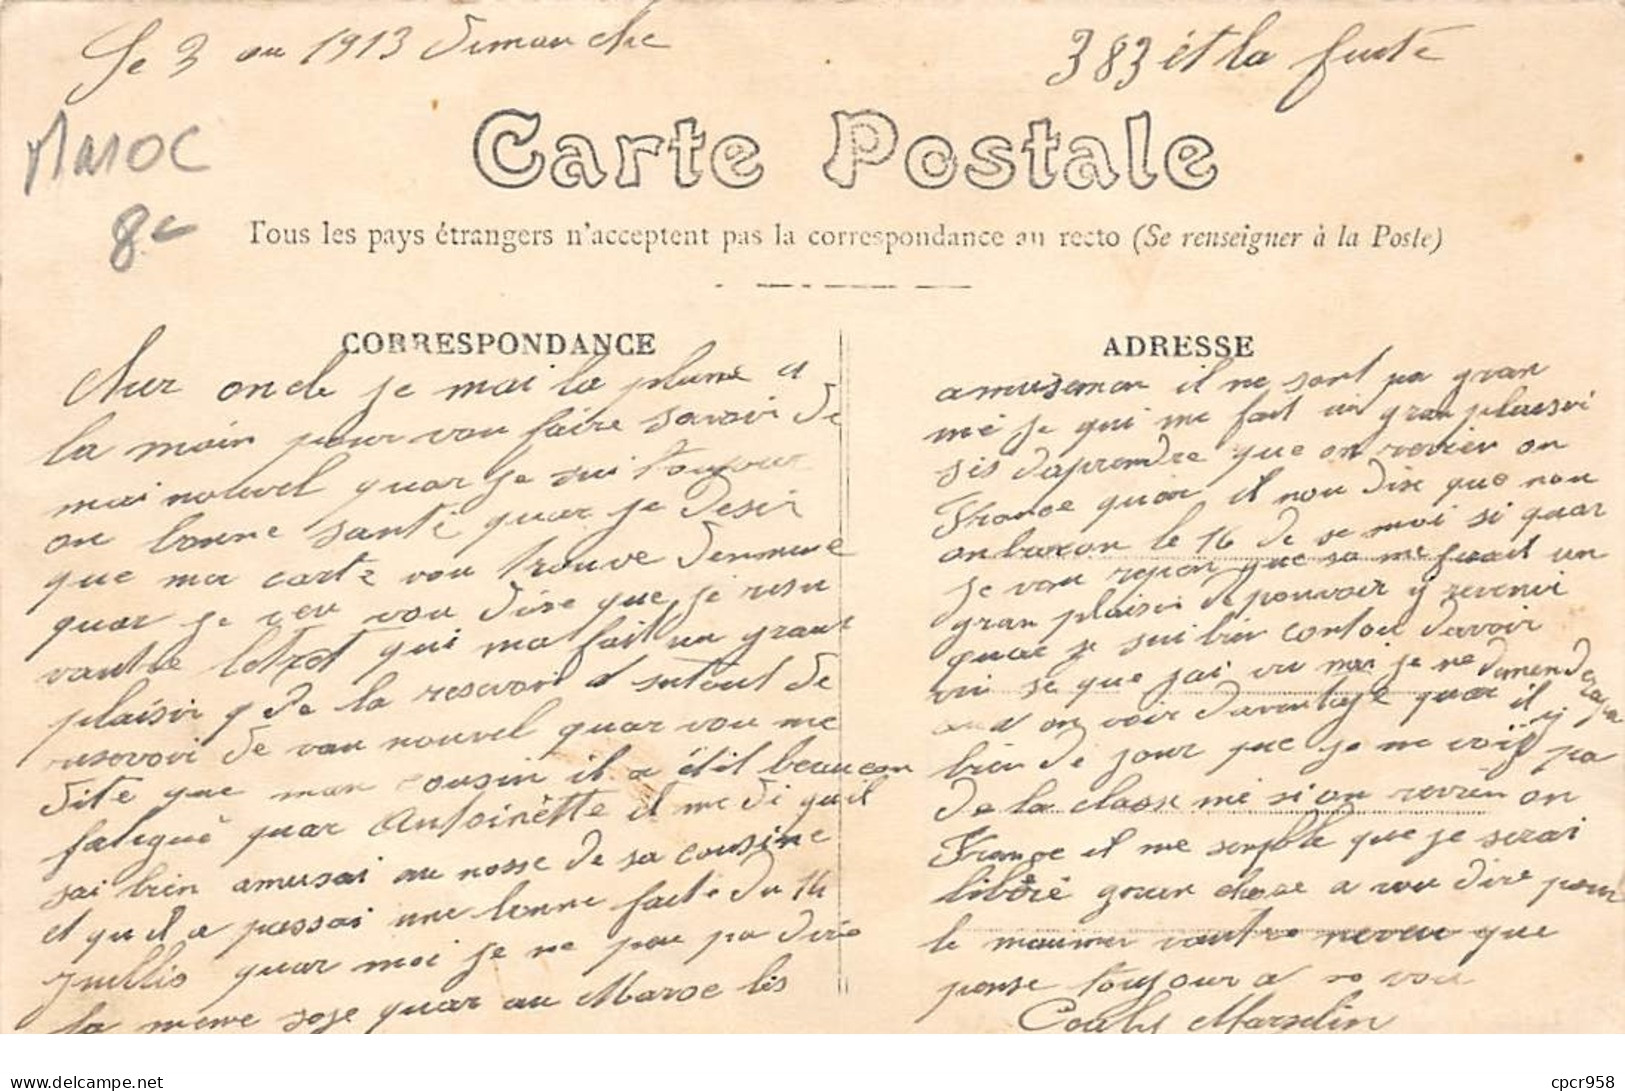 Le 3 au 1913 Dimanche
383 et la fuite
Maroc
8
Carte Postale
Tous les pays étrangers n'acceptent pas la correspondance au recto (Se renseigner à la Poste)
CORRESPONDANCE
Chur oncle je mai la plume a
la main pour vou faire savoir de
mai nouvel quar je sui toujour
on bonne santé quar je desir
que ma carte vou trouve denmeme
quar je veu vou dire que je resu
vautre letret qui ma fait un grant
plaisir de la resevoir et surtout de
resevoir de vau nouvel quar vou me
dite que mon cousin il a étit beaucou
fatigué quar Antoinètte il me di quil
sai bien amusai au nosse de sa cousine
et qu il a passai une bonne faite du 14
juillis quar moi je ne pou pa dire
la meme sose quar au Maroc lis
ADRESSE
amusemon il ne sont pa gran
mé se qui me fait un gran plaisir
sis daprendre que on revien on
France quar il nou dise que nou
onbarcon le 16 de se moi si quar
je vou repon que sa me fuait un
gran plaisir de pouvoir y revenir
quar je sui bien conton davoir
vu se que jai vu mai je ne demende pa
a on voir davontage quar il y
bien de jour que je ne voi pa
de la classe mé si on revien on
France il me semble que je serai
libéré gran chose a vou dire pour
le maumen vautre neveu que
pense toujour a vou
Couly Marselin
cpcr958